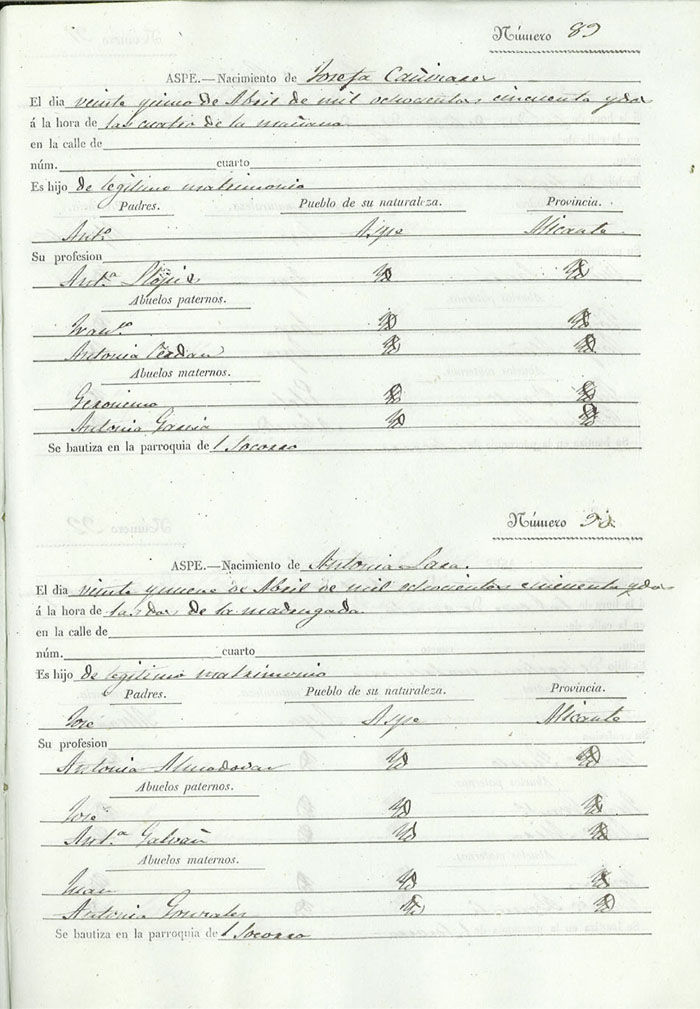 Número 89
ASPE.—Nacimiento de Josefa Cañizares
El dia veinte y nueve de Abril de mil ochocientos cincuenta y dos
á la hora de las cuatro de la mañana
en la calle de
núm. cuarto
Es hijo de legitimo matrimonio
Padres. Pueblo de su naturaleza. Provincia.
Antº Aspe Alicante
Su profesion
Antª
Abuelos paternos.
Franco
Antonia Cerdan
Abuelos maternos.
Geronimo
Antonia Garcia
Se bautiza en la parroquia del Socorro
Número 90.
ASPE.—Nacimiento de Antonia Lasa.
El dia veinte y nueve de Abril de mil ochocientos cincuenta y dos
á la hora de las dos de la madrugada
en la calle de
núm. cuarto
Es hijo de legitimo matrimonio
Padres. Pueblo de su naturaleza. Provincia.
Jose Aspe Alicante
Su profesion
Antonia Almodovar
Abuelos paternos.
Jose
Antª Galvañ
Abuelos maternos.
Juan
Antonia Gonzales
Se bautiza en la parroquia del Socorro